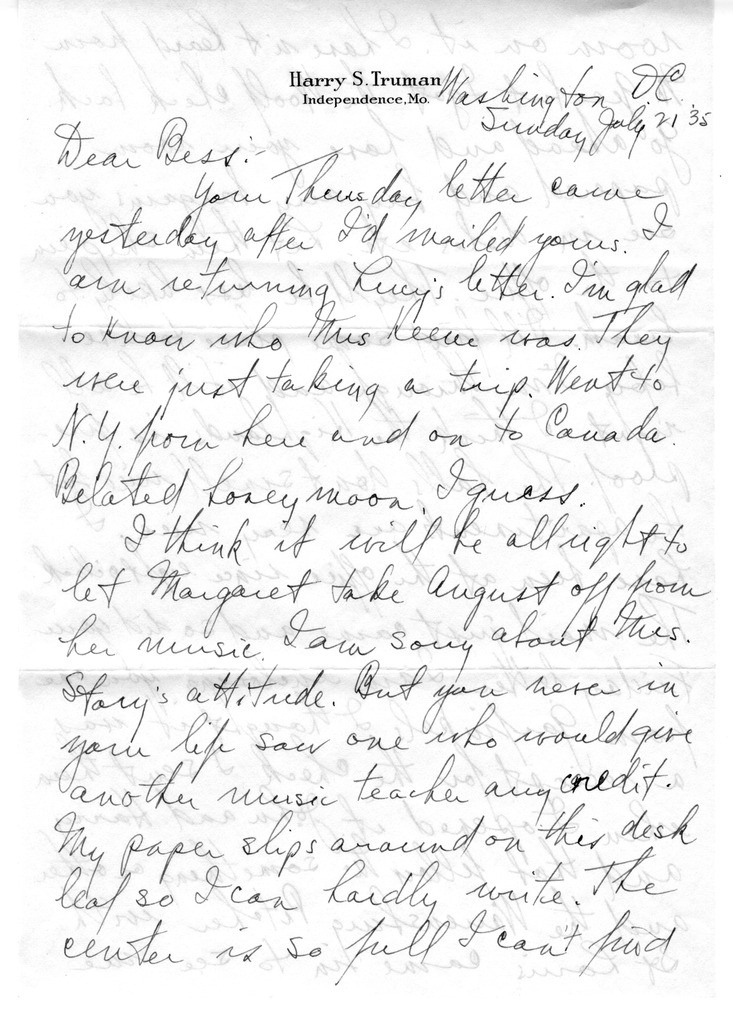 Harry S. Truman
Independence, Mo.
Washington, D.C.
Sunday July 21 '35
Dear Bess:-
Your Thursday letter came
yesterday after I'd mailed yours. I
am returning Lucy's letter. I'm glad
to know who Mrs Keene was. They
were just taking a trip. Went to
N.Y. from here and on to Canada.
Belated honeymoon, I guess.
I think it will be all right to
let Margaret take August off from
her music. I am sorry about Mrs.
Story's attitude. But you never in
your life saw one who would give
another music teacher any credit.
My paper slips around on this desk
leaf so I can hardly write. The
center is so full I can't find